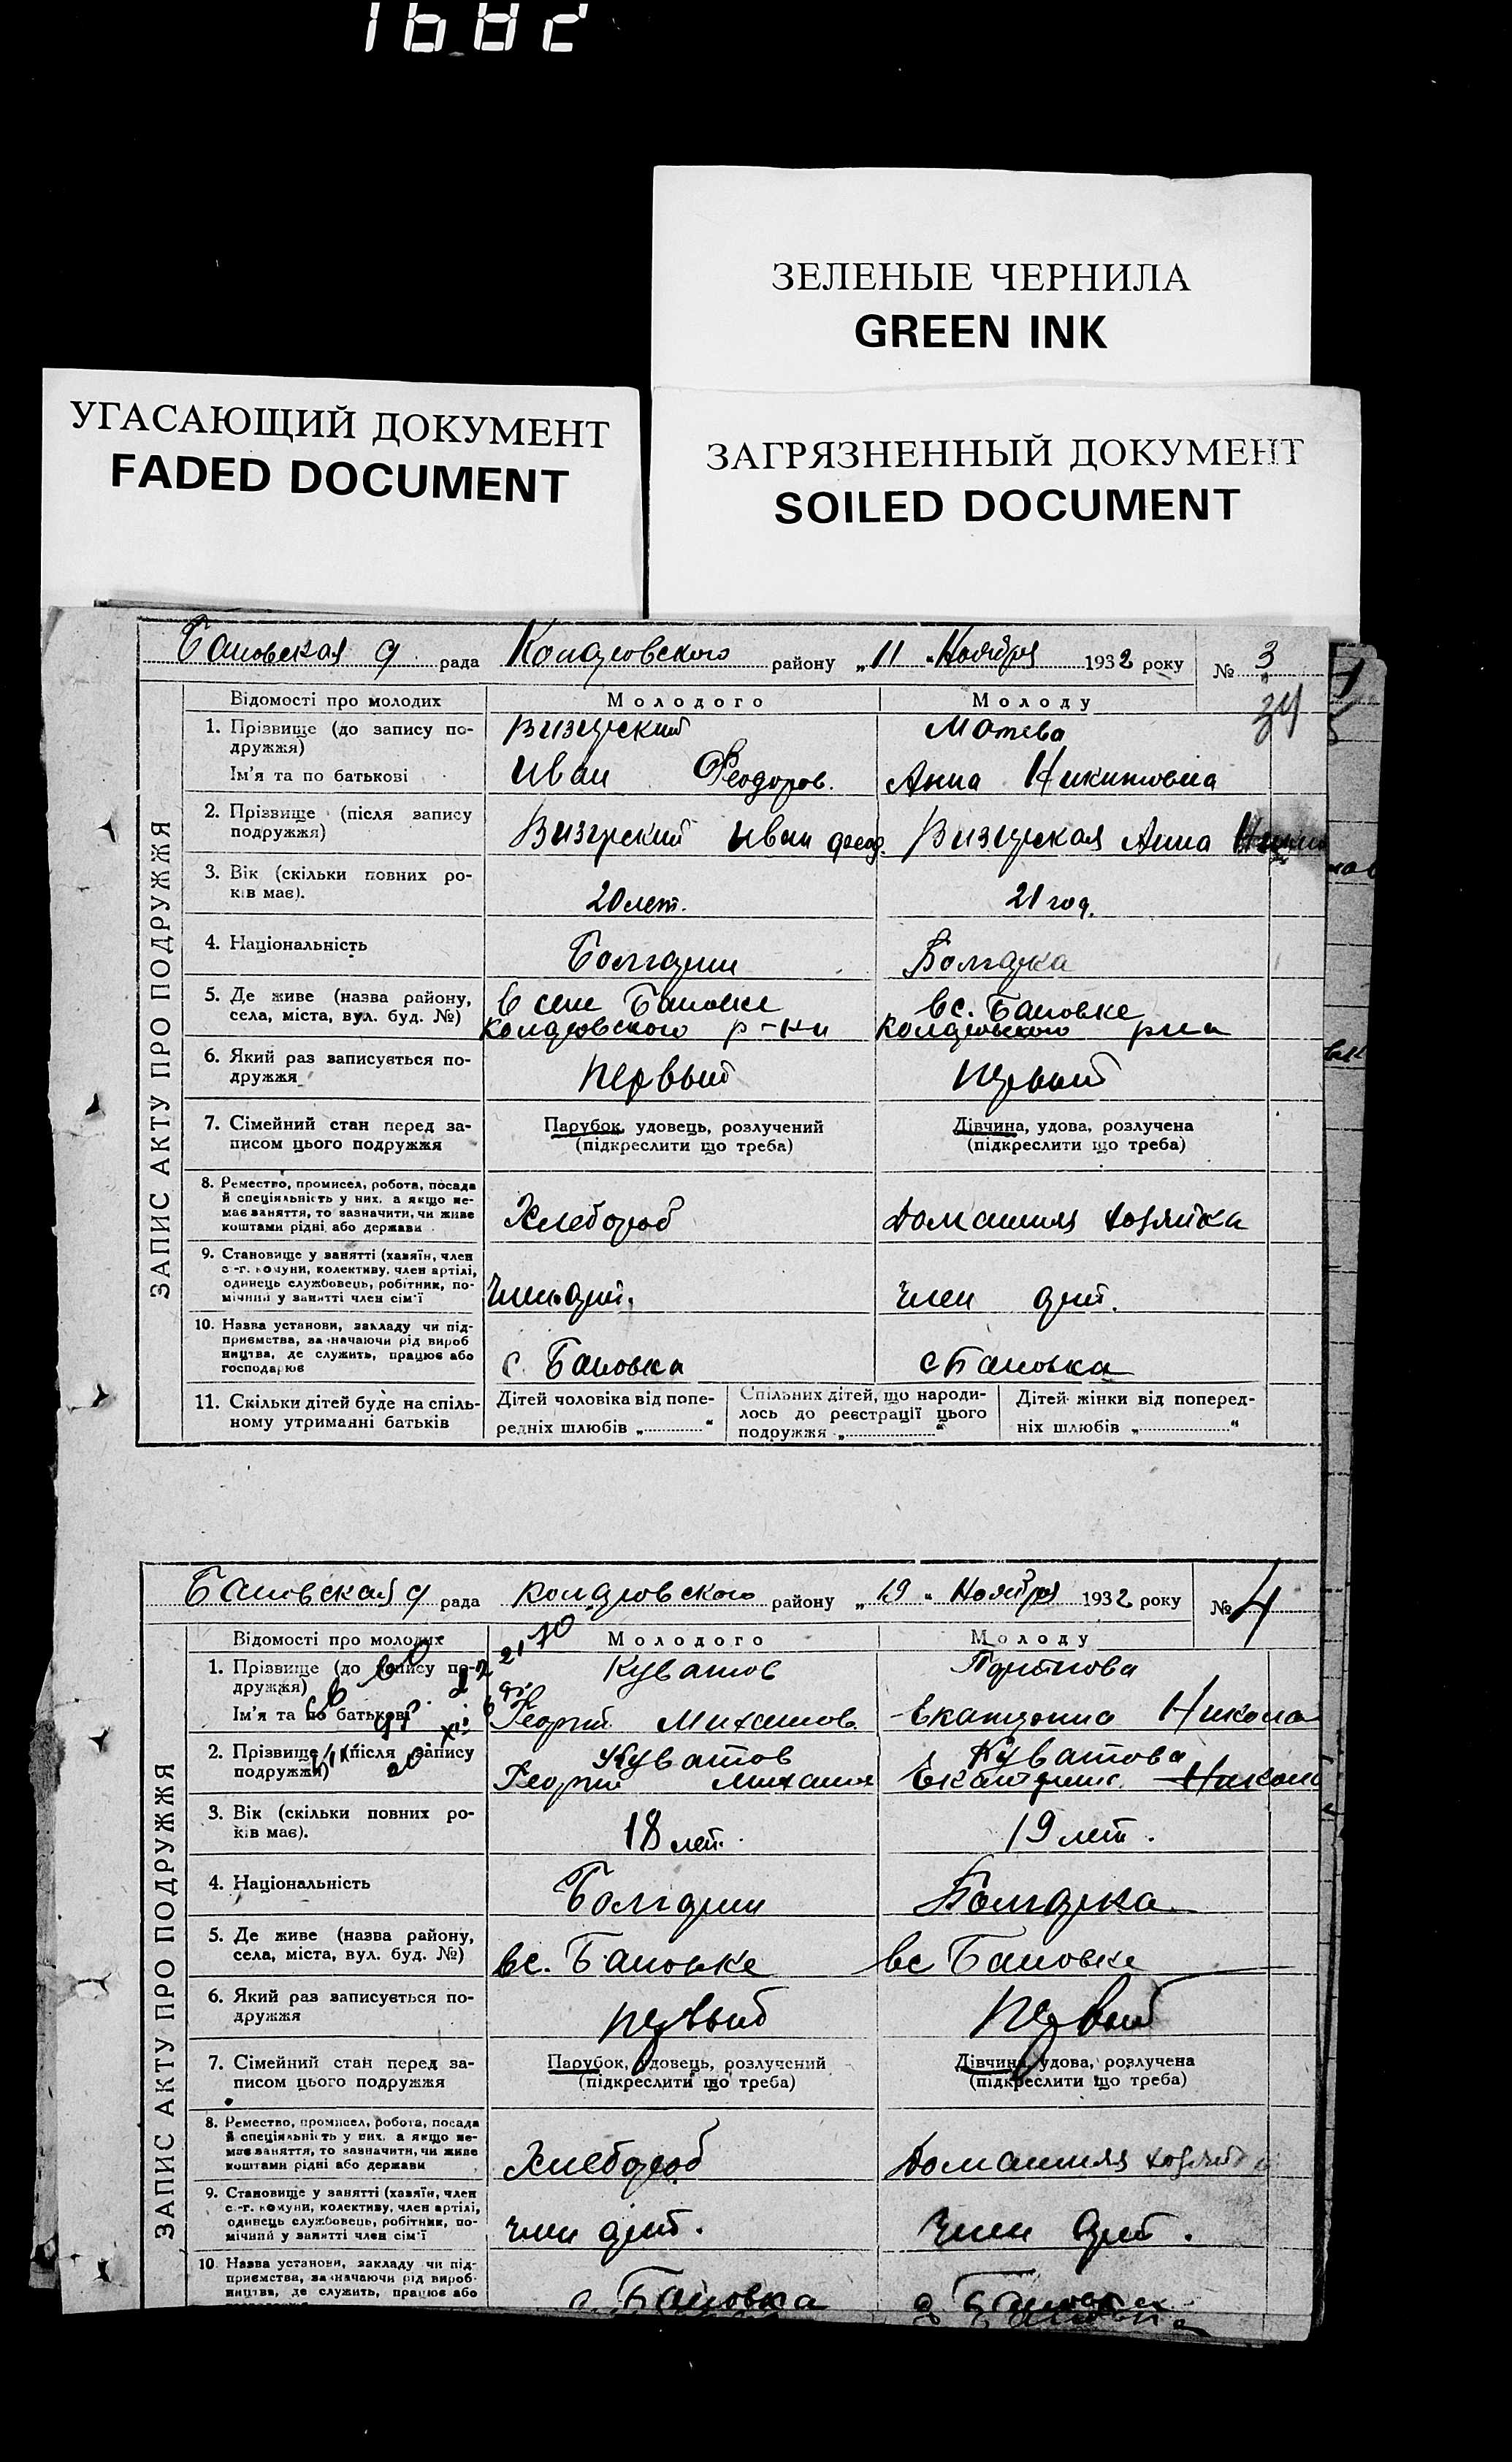 1682
ЗЕЛЕНЫЕ ЧЕРНИЛА
GREEN INK
УГАСАЮЩИЙ ДОКУМЕНТ
FADED DOCUMENT
ЗАГРЯЗНЕННЫЙ ДОКУМЕНТ
SOILED DOCUMENT
Бановская рада району „11 „ Ноября 1932 року № 3
34
ЗАПИС АКТУ ПРО ПОДРУЖЖЯ
Відомості про молодих Молодого Молоду
1. Прізвище (до запису по-
дружжя)
Ім'я та по батькові
Визирский
Иван Феодоров.
Матева
Анна Никитовна
2. Прізвище (після запису
подружжя)
Визирский Иван феод.
Визирская Анна
3. Вік (скільки повних ро-
ків має).
20 лет.
21 год.
4. Національність
Болгарин
Болгарка
5. Де живе (назва району,
села, міста, вул. буд. №)
в селе Бановке
р-на
в с. Бановке
рна
6. Який раз записується по-
дружжя
первый
первый
7. Сімейний стан перед за-
писом цього подружжя
Парубок, удовець, розлучений
(підкреслити що треба)
Дівчина, удова, розлучена
(підкреслити що треба)
8. Ремество, промисел, робота, посада
й спеціяльність у них, а якщо не-
має заняття, то зазначити, чи живе
коштами рідні або держави
Хлебороб
Домашняя хозяйка
9. Становище у занятті (хазяїн, член
с.-г. комуни, колективу, член артілі,
одинець службовець, робітник, по-
мічний у занятті член сім'ї
член арт.
член арт.
10. Назва установи, закладу чи під-
приємства, зазначаючи рід вироб
ництва, де служить, працює або
господарює
с. Бановка
с Бановка
11. Скільки дітей буде на спіль-
ному утриманні батьків
Дітей чоловіка від попе-
редніх шлюбів „ “
Спільних дітей, що народи-
лось до реєстрації цього
подружжя „ “
Дітей жінки від поперед-
ніх шлюбів „ “
Бановская рада району „ 19 „ Ноября 1932 року № 4
ЗАПИС АКТУ ПРО ПОДРУЖЖЯ
Відомості про молодих Молодого Молоду
1. Прізвище (до запису по-
дружжя)
Ім'я та по батькові
Куватов
Георгий Михайлов.
Портнова
Екатерина Никола
2. Прізвище (після запису
подружжя)
Куватов
Георгий Михайл
Куватова
Екатерина Никол
3. Вік (скільки повних ро-
ків має).
18 лет.
19 лет.
4. Національність
Болгарин
Болгарка
5. Де живе (назва району,
села, міста, вул. буд. №)
в с. Бановке
в с Бановке
6. Який раз записується по-
дружжя
первый
первый
7. Сімейний стан перед за-
писом цього подружжя
Парубок, удовець, розлучений
(підкреслити що треба)
Дівчина, удова, розлучена
(підкреслити що треба)
8. Ремество, промисел, робота, посада
й спеціяльність у них, а якщо не-
має заняття, то зазначити, чи живе
коштами рідні або держави
Хлебороб
Домашняя хозяйка
9. Становище у занятті (хазяїн, член
с.-г. комуни, колективу, член артілі,
одинець службовець, робітник, по-
мічний у занятті член сім'ї
член арт.
член арт.
10. Назва установи, закладу чи під-
приємства, зазначаючи рід вироб-
ництва, де служить, працює або
с. Бановка